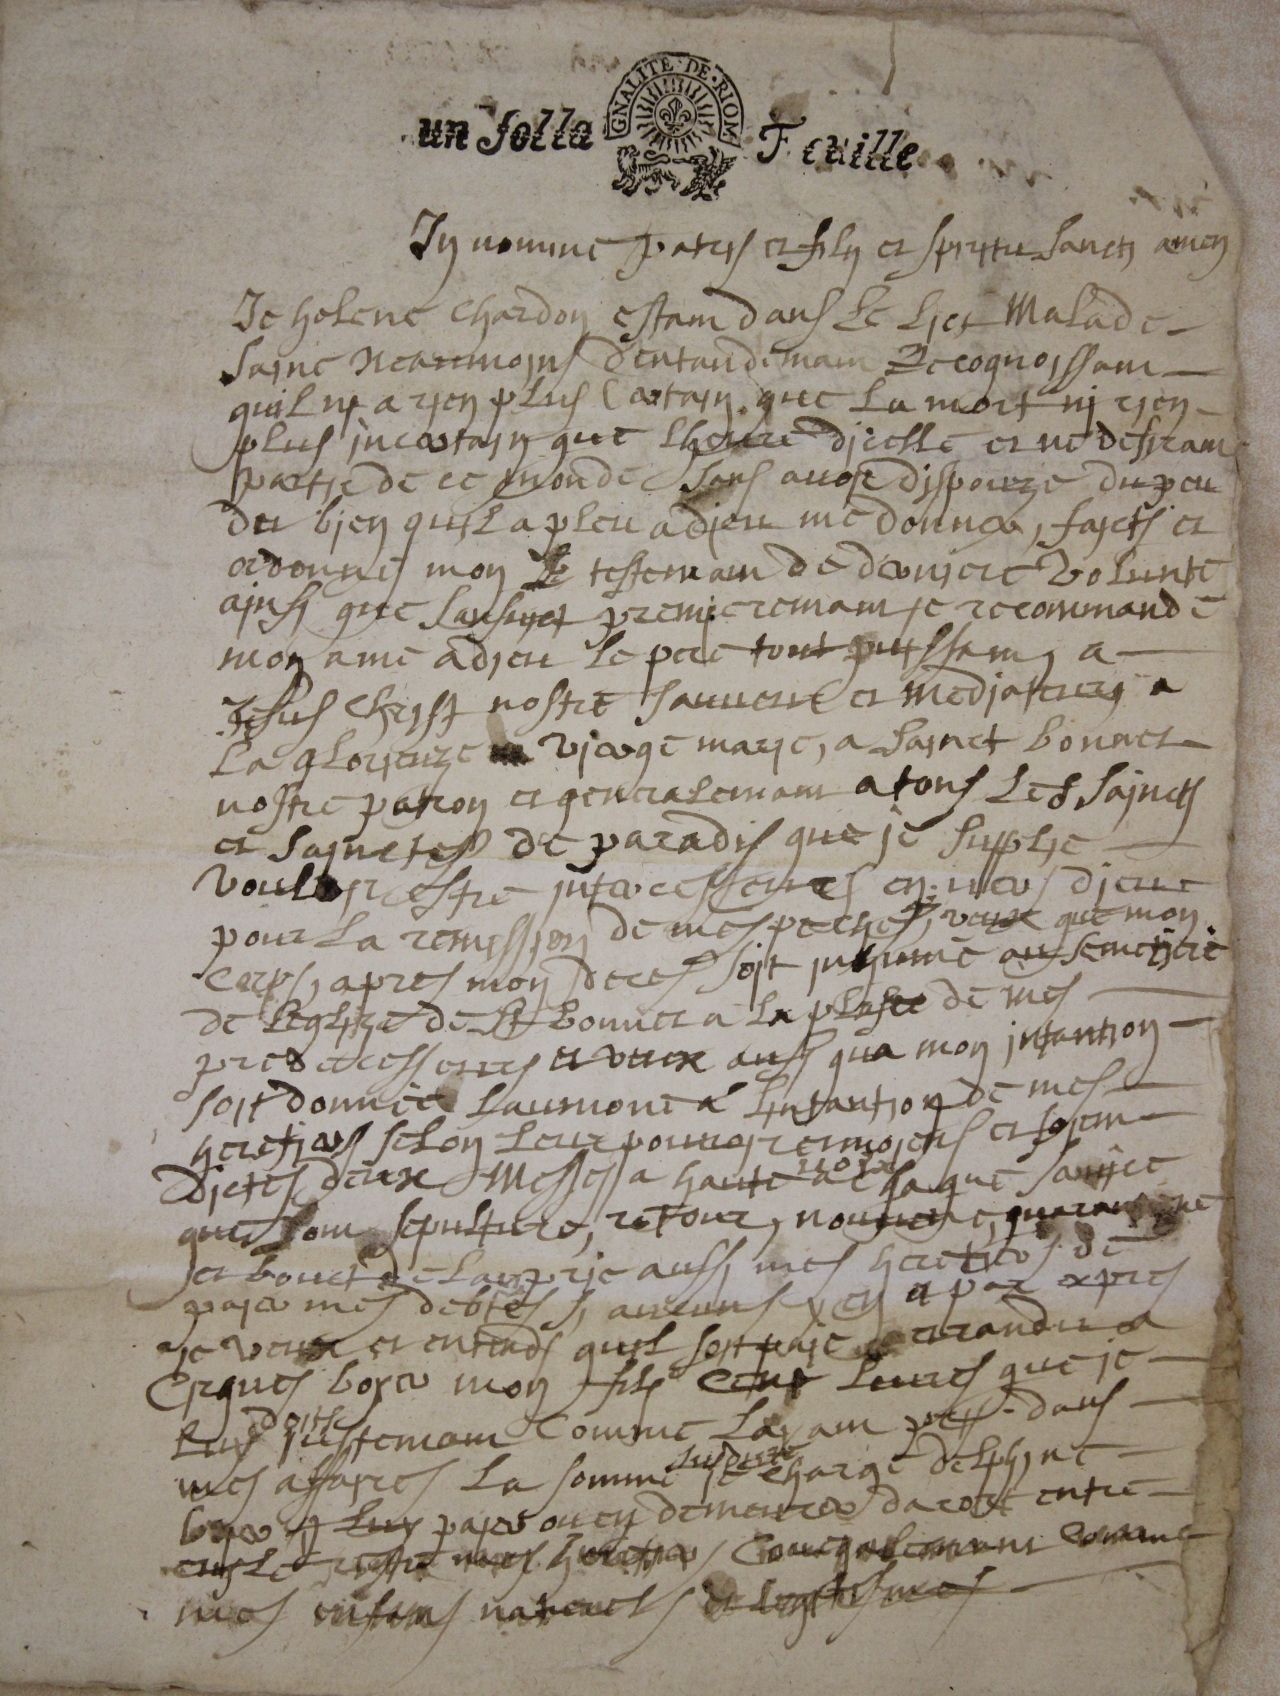 GNALITE·DE·RIOM
un folla Feuille
In nomine patris et filij et spiritu Sancti amen
Je helene Chardon estam dans Le Lict Malade
Saine Neammoins d'entandemam Recognoissam
quil ny a rien plus Certain que La mort ny rien
plus incertain que Lheure dicelle et ne desiram
partir de ce monde sans avoir dispouze du peu
du bien quil a pleu a dieu me donner, faicts et
ordonne mon testemam de derniere Volunte
ainsi que sansuict premieremam je recommande
mon ame a dieu Le pere tout puissam, a
Jesus Christ nostre Sauveur et Mediateur a
La glorieuze vierge marie, a Sainct bonnet
nostre patron et generalemam a tous Les Saincts
et Sainctes de paradis que je Supplie
Vouloir estre intercesseurs envers dieu
pour La remission de mes peches, veux que mon
Corps, apres mon deces soit inhume au semetiere
de Leglize de St bonnet a La plasse de mes
predecesseurs et veux aussi qua mon intantion
soit donnee Laumone a Lintantion de mes
heretiers selon Leur pouvoir et moiens et soient
dictes deux Messes a haute voix a chaque
que som sepulture, retour, nouvene, quarantene
et bout de Lan prie aussi mes heretiers de
paier mes debtes si aucuns y en a par expres
je veux et entends quil soit paie et randu a
boyer mon fils Cent Livres que je
Luy doits justemam Comme Layam dans
mes affaires La somme susdite je charge delphine
boyer Luy paier ou en demeurer daccort entre
eux Le reste mes heretiers esgalemam Comme
mes enfans naturels et legitimes